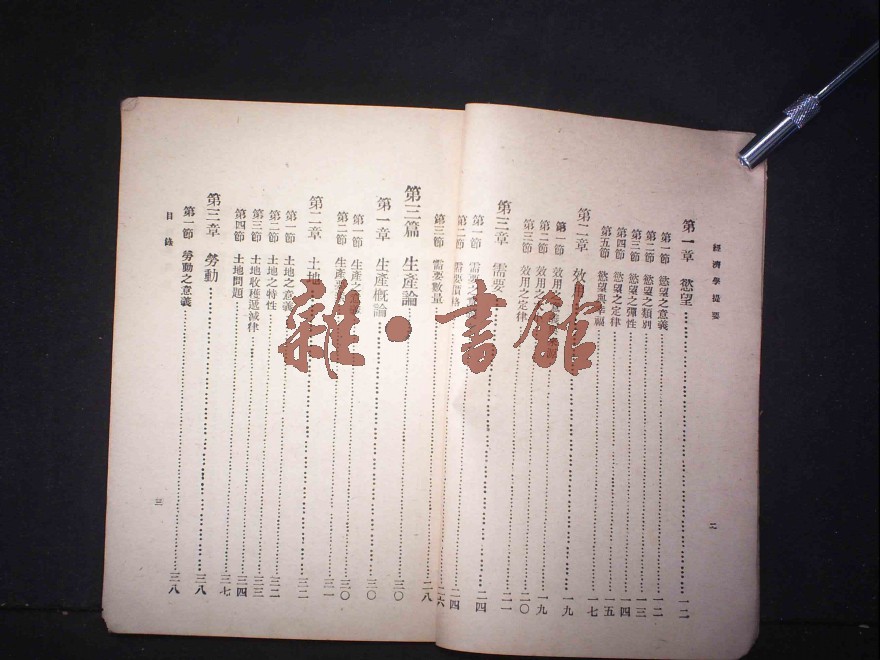 經濟學提要
第一章　慾望……一二
第一節　慾望之意義……一二
第二節　慾望之類別……一三
第三節　慾望之彈性……一四
第四節　慾望之定律……一五
第五節　慾望與幸福……一七
第二章　效用……一九
第一節　效用……一九
第二節　效用……
第三節　效用之定律……二〇
第三章　需要……二一
第一節　需要之……二四
第二節　需要價格……二四
第三節　需要數量……二六
二
第三篇　生產論……三〇
第一章　生產概論……三〇
第一節　生產之……三〇
第二節　生產……三一
第二章　土地……三二
第一節　土地之意義……三二
第二節　土地之特性……三三
第三節　土地收穫遞減律……三四
第四節　土地問題……三七
第三章　勞動……三八
第一節　勞動之意義……三八
目錄
三
雜·書館